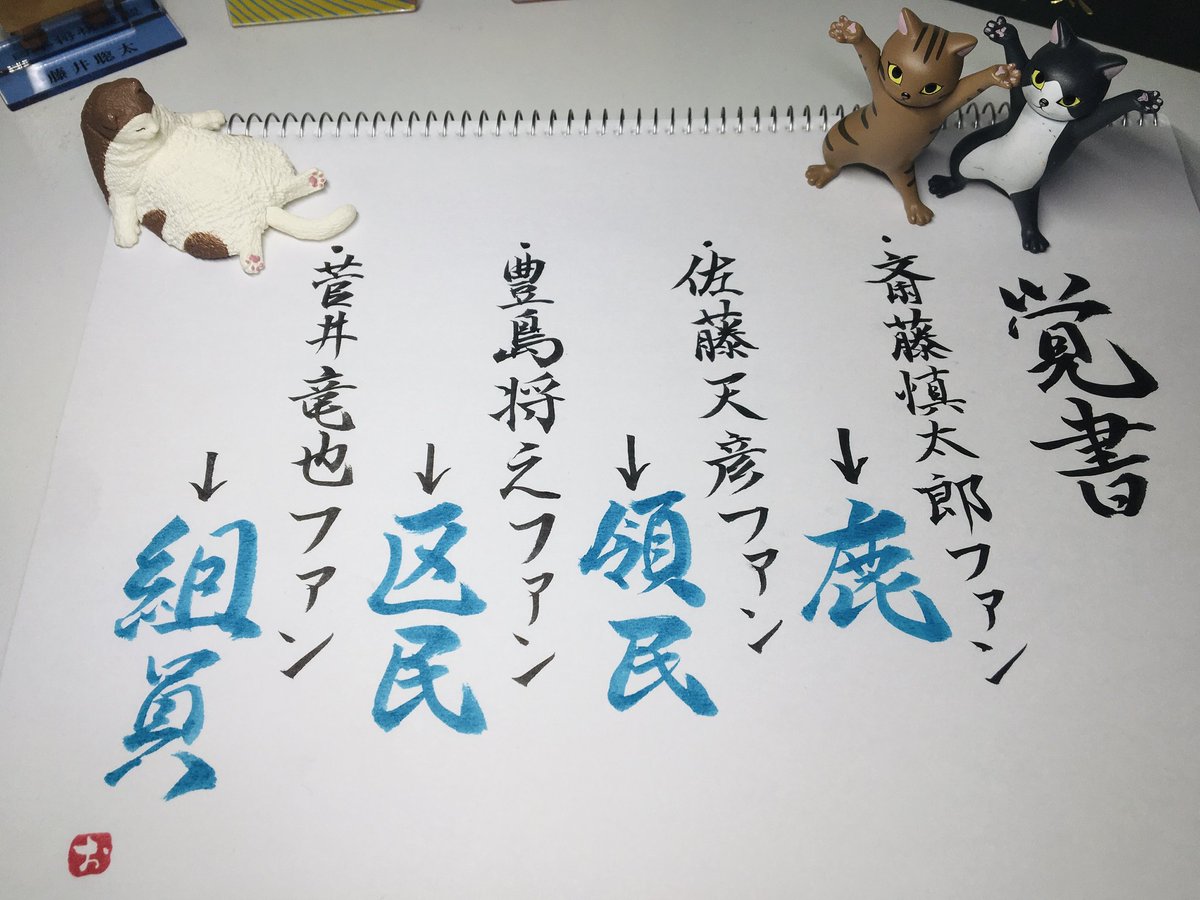 覚書
・斎藤慎太郎ファン
↓
鹿
・佐藤天彦ファン
↓
領民
・豊島将之ファン
↓
区民
・菅井竜也ファン
↓
組員
お
藤井聡太